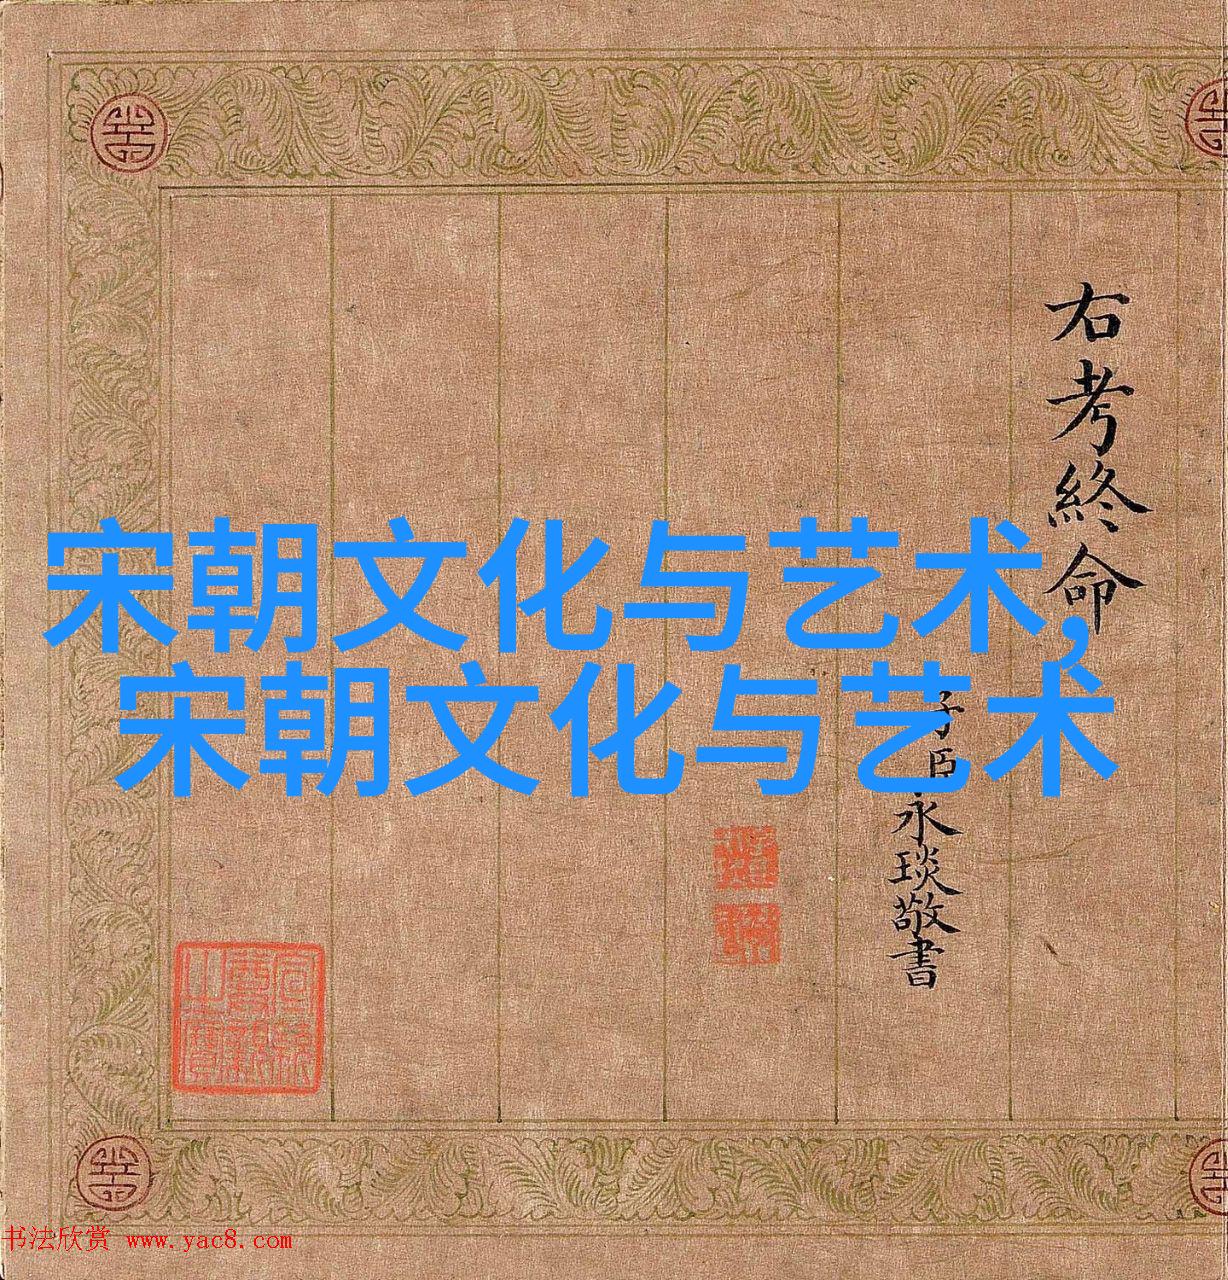 右考終命
子臣永琰敬書
宋朝文化与艺术,
宋朝文化与艺术
书法欣赏 www.yac8.com